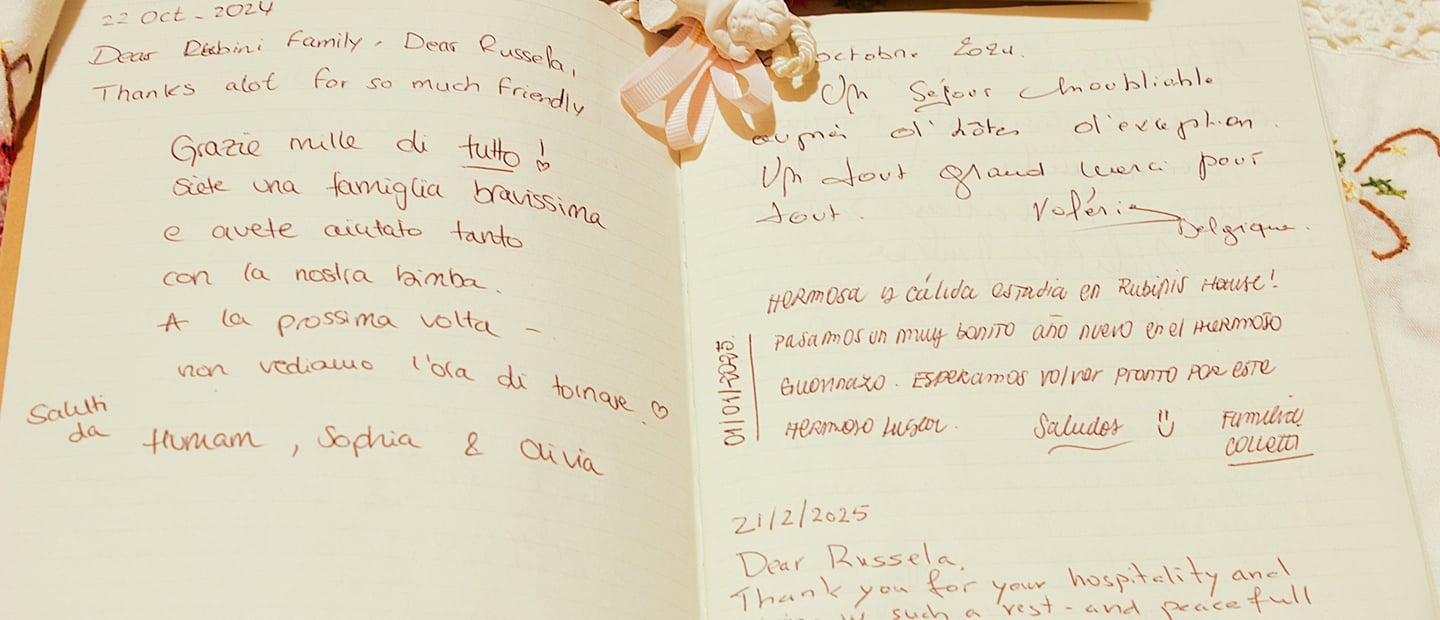 22 Oct - 2024
Dear Rubini Family, Dear Russela,
Thanks alot for so much friendly
Grazie mille di tutto!
Siete una famiglia bravissima
e avete aiutato tanto
con la nostra bimba.
A la prossima volta -
non vediamo l'ora di tornare.
Saluti
da Humam, Sophia & Olivia
octobre 2024.
Un Séjour inoubliable
auprès d'hôtes d'exception.
Un tout grand merci pour
tout. Valérie
Belgique.
HERMOSA y cálida estadia en Rubinis House!
01/01/2025.
PASAMOS un muy bonito año nuevo en el HERMOSO
ESPERAMOS volver pronto POR este
HERMOSO Lugar. Saludos Familia
COLLETTI
21/2/2025
Dear Russela,
Thank you for your hospitality and
such a rest- and peacefull